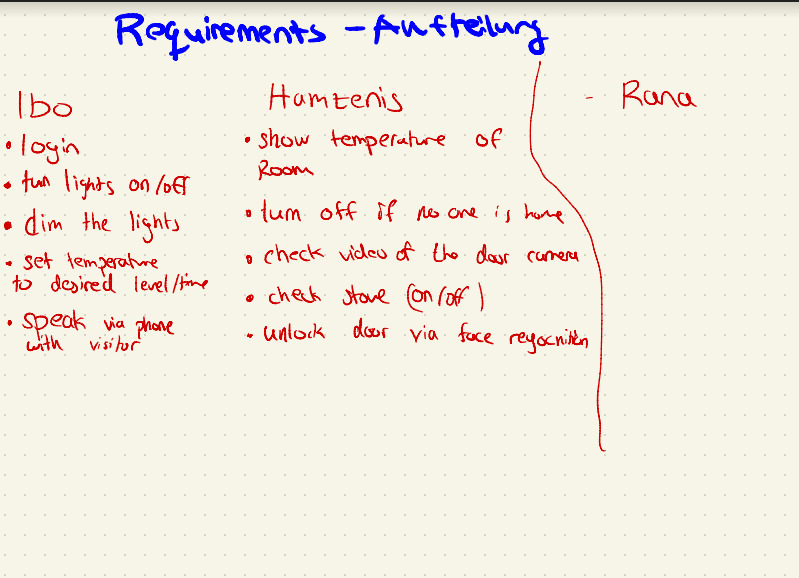 Requirements - Aufteilung
Ibo
• login
• turn lights on/off
• dim the lights
• set temperature
to desired level/time
• speak via phone
with visitor
Hamzenis
• show temperature of
Room
• turn off if no one is home
• check video of the door camera
• check stove (on/off)
• unlock door via face regocnition
- Rana